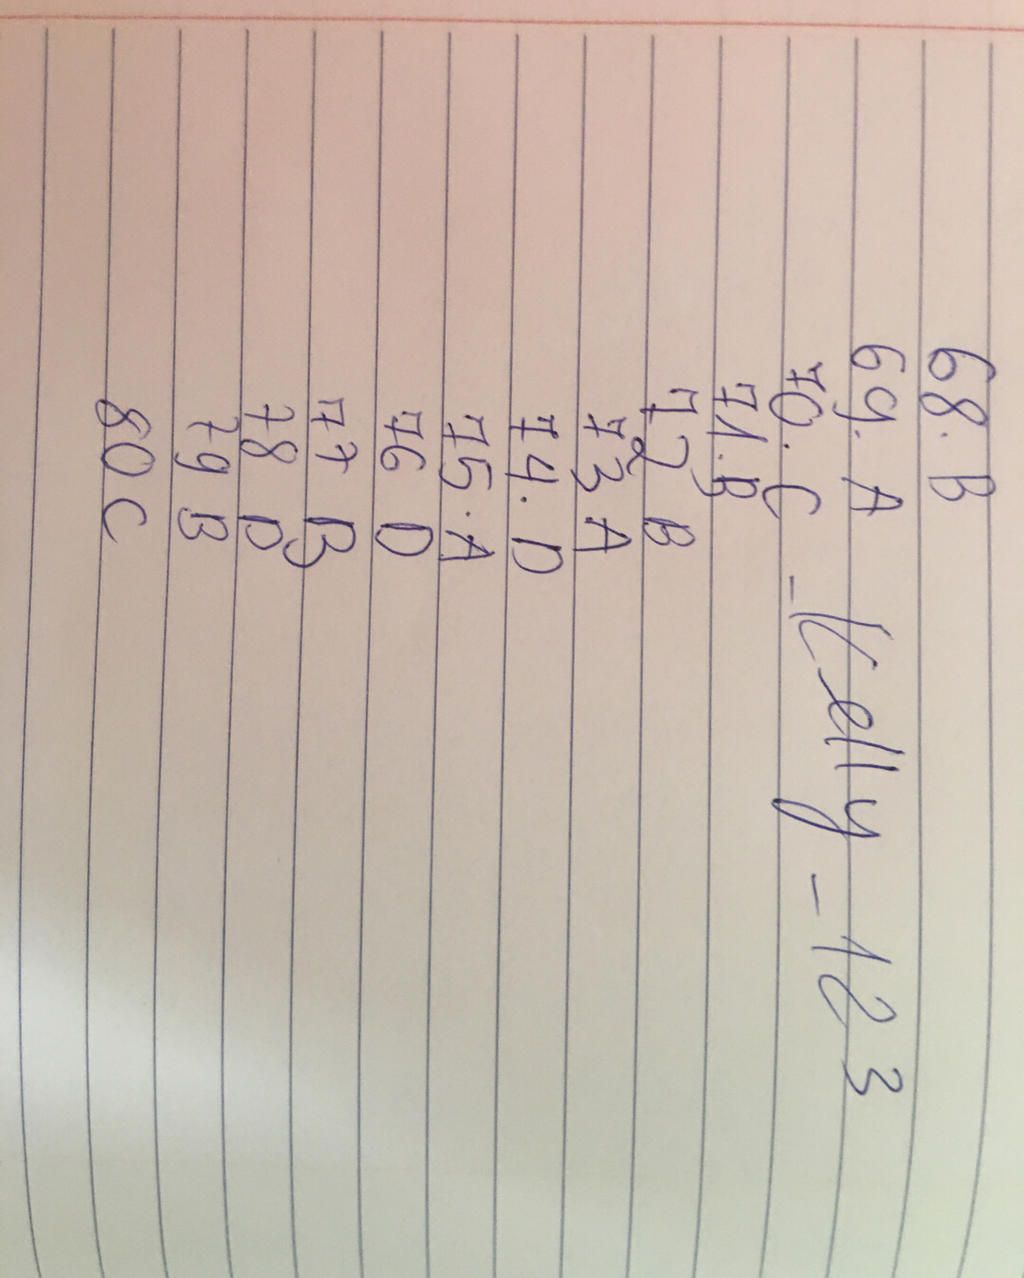 68. B
69. A
70. C
-Kelly-123
71. B
72 B
73 A
74. D
75. A
76 D
77 B
78 D
79 B
80 C